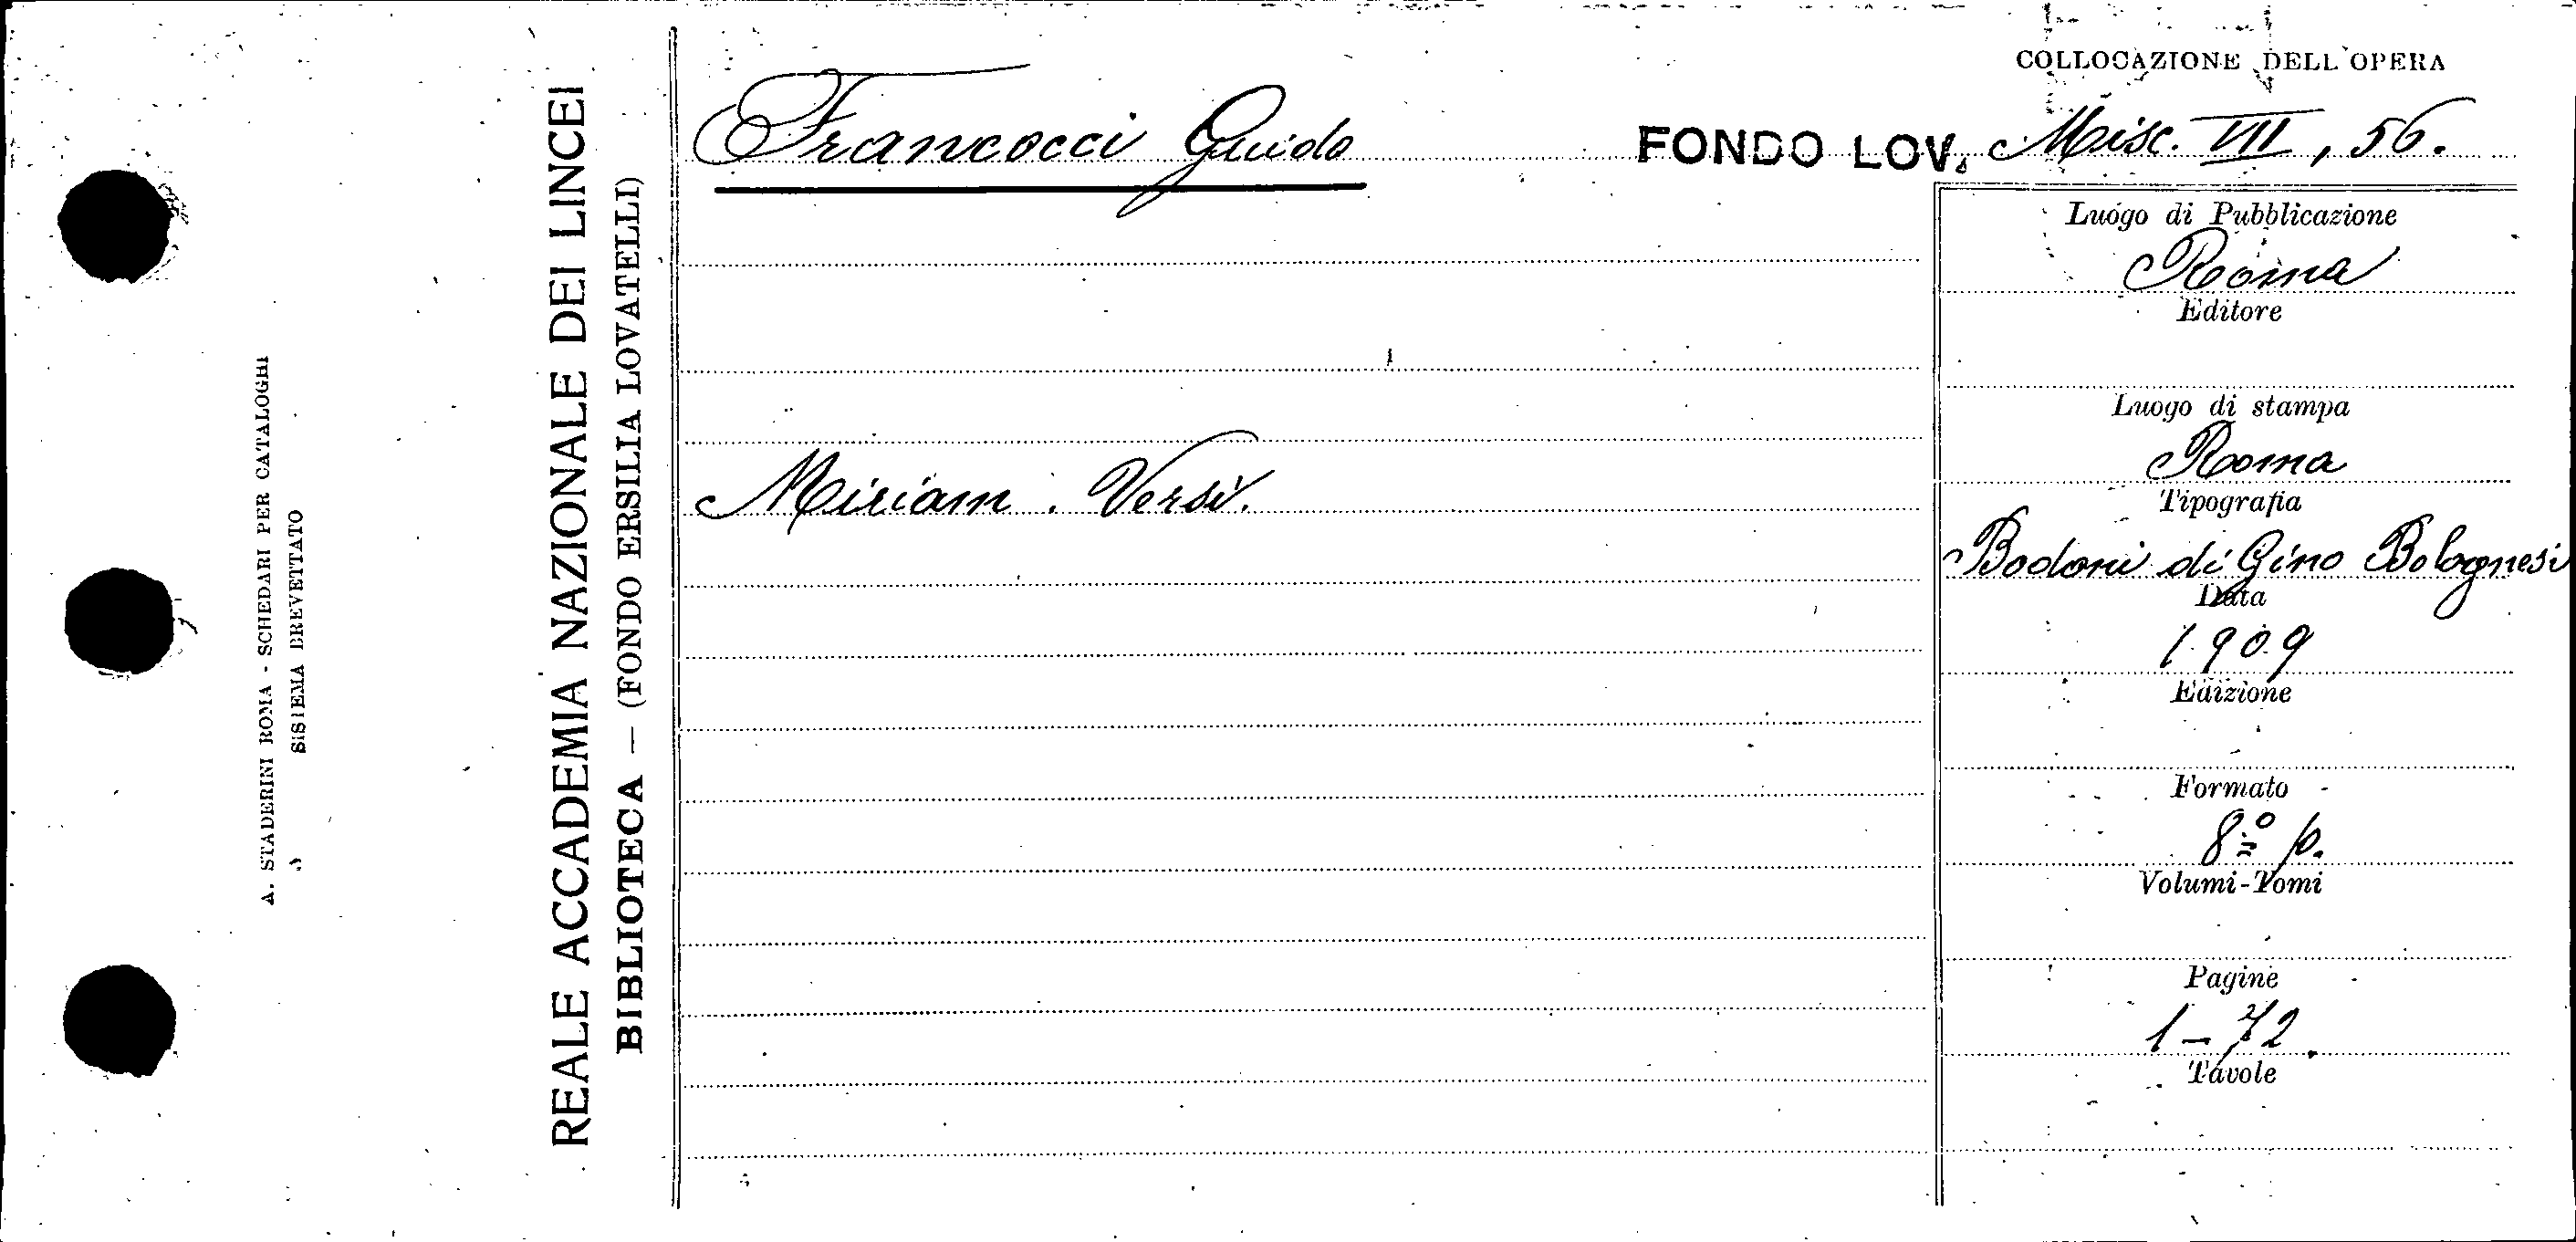 A. STADERINI ROMA - SCHEDARI PER CATALOGHI
SISTEMA BREVETTATO
REALE ACCADEMIA NAZIONALE DEI LINCEI
BIBLIOTECA — (FONDO ERSILIA LOVATELLI)
COLLOCAZIONE DELL'OPERA
Francocci Guido
FONDO LOV. Misc. VII, 56.
Miriam. Versi.
Luogo di Pubblicazione
Roma
Editore
Luogo di stampa
Roma
Tipografia
Bodoni di Gino Bolognesi
Data
1909
Edizione
Formato
8º p.
Volumi-Tomi
Pagine
1-72.
Tavole